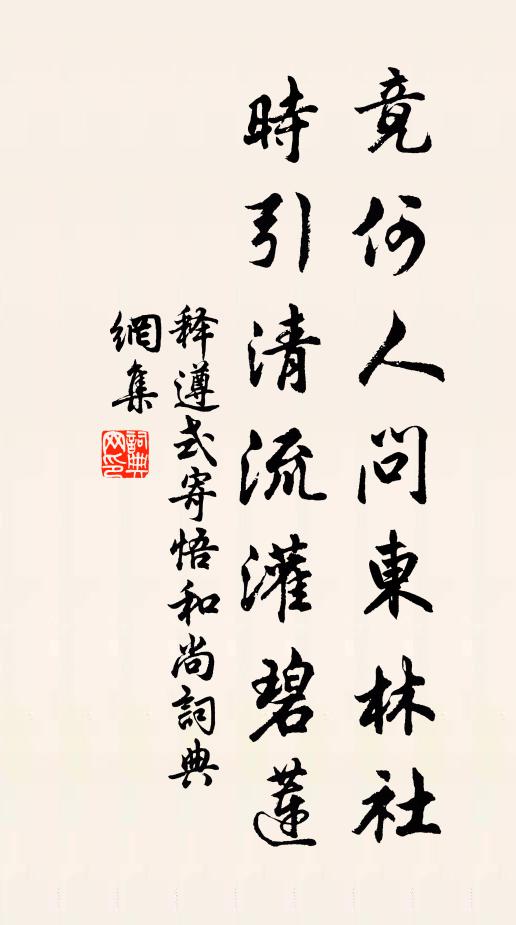 竟何人問東林社
時引清流灌碧蓮
释遵式寄悟和尚詞典
網集
詞典網印